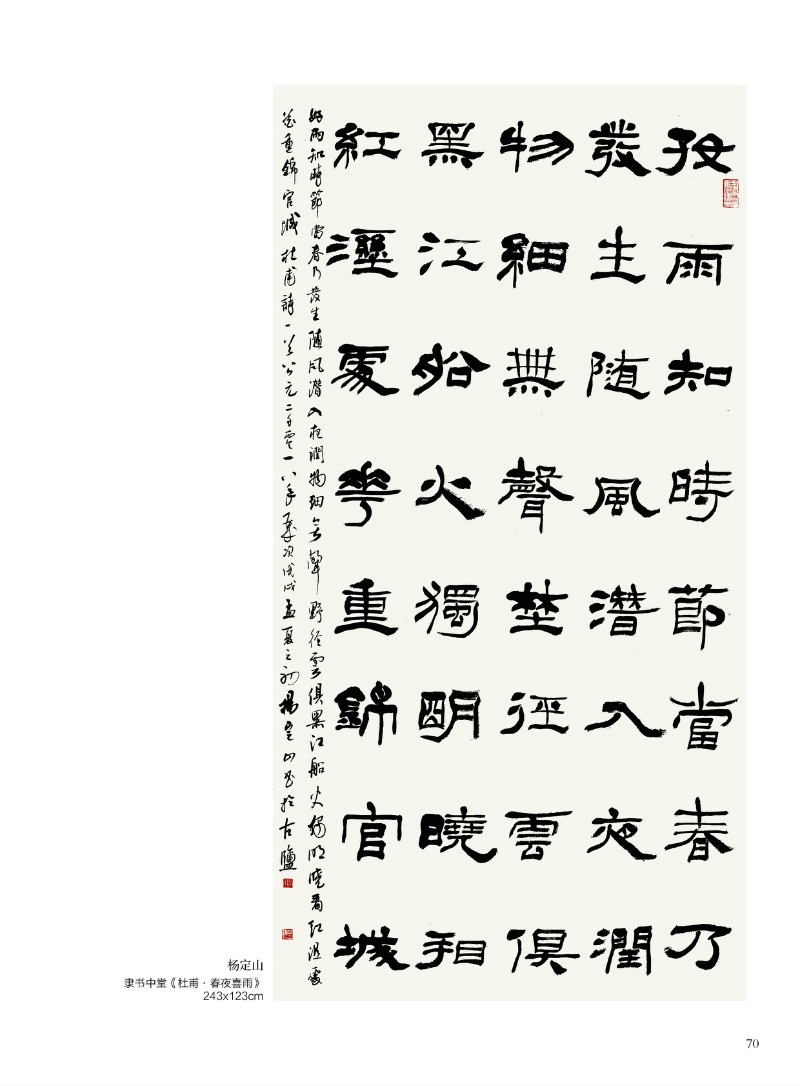 好雨知時節當春乃
發生随風潛入夜潤
物細無聲埜徑雲俱
黑江船火獨明曉相
紅溼處華重錦官城
好雨知時節當春乃發生随風潛入夜潤物細無聲野徑雲俱黑江船火獨明曉看紅溼處
花重錦官城杜甫詩一首公元二千零一八年歲次戊戌孟夏之初楊定山書於古鹽
杨定山
隶书中堂《杜甫·春夜喜雨》
243x123cm
70